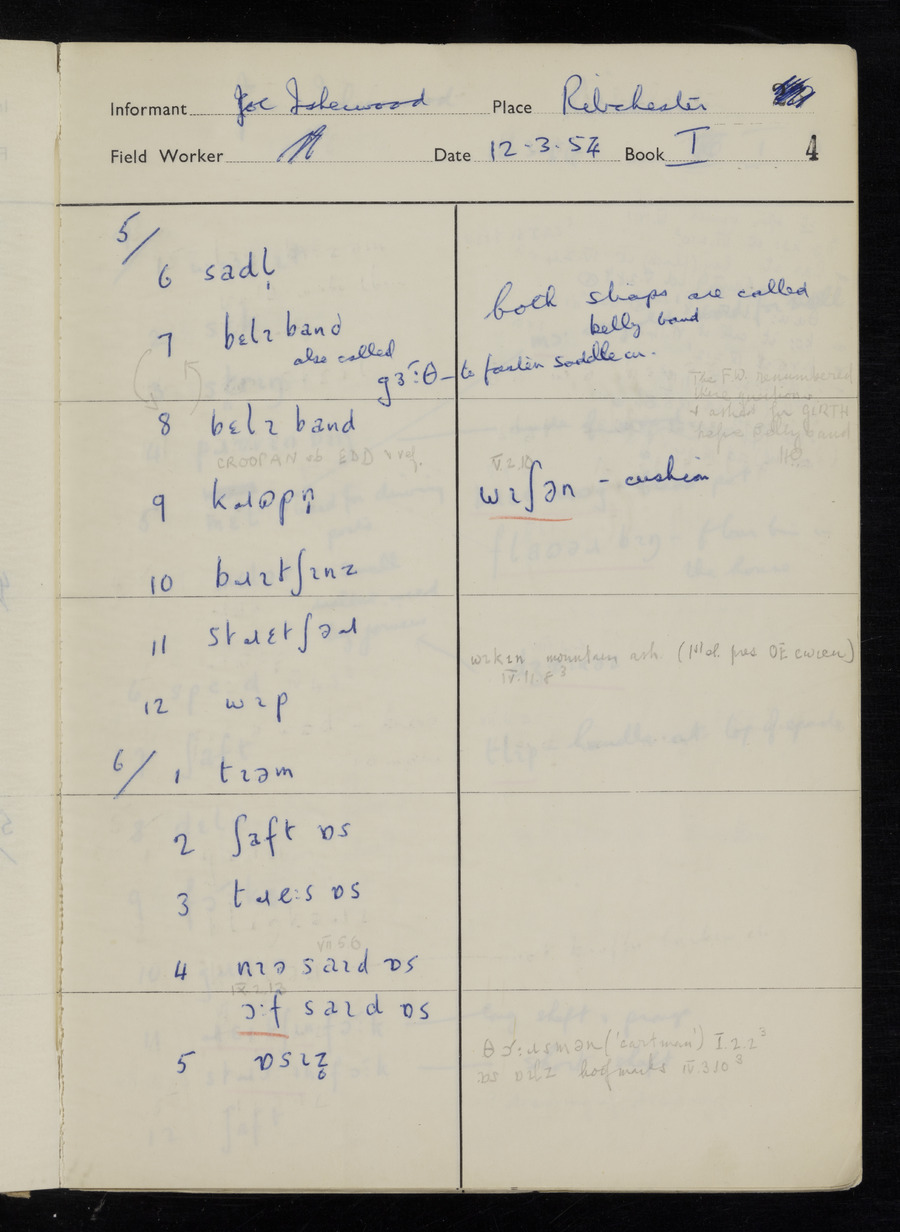 Informant Joe Isherwood Place Ribchester
Field Worker Date 12-3-54 Book I 4
5/
6 sadl̩
7 bɛlɪ band
also called
gɜ˔:θ - to fasten saddle on.
both straps are called
belly band
The F.W. renumbered
these questions
& asked for GIRTH
before Belly band
8 bɛlɪ band
CROOPAN sb EDD
V.2.10
wɪʃən - cushion
9 kɹɒpn̩
10 bɹɪtʃɪnz
11 stɹɛtʃəɹ
wɪkɪn mountain ash (1st el. pres OE cwicen)
IV.11.8³
12 wɪp
6/ 1 tɪəm
2 ʃaft ɒs
3 tɹe:s ɒs
VII.5.6
4 nɪə saɪd ɒs
IX.2.13
ɔ:f saɪd ɒs
5 ɒsɪz̥
('cartman') I.2.2³
IV.3.10³